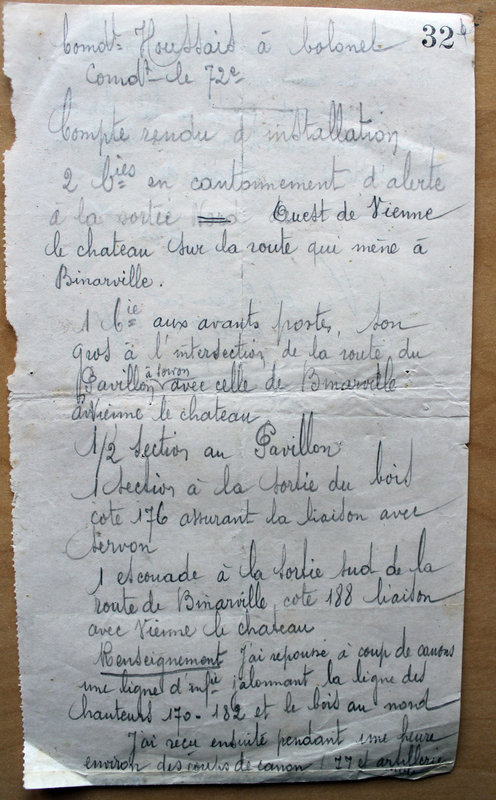 Comdt Houssais à Colonel 32b
Comdt le 72e
Compte rendu d'installation
2 Cies en cantonnement d'alerte
à la sortie Ouest de Vienne
le chateau sur la route qui mène à
Binarville.
1 Cie aux avants postes, son
gros à l'intersection de la route du
Pavillon à Servon avec celle de Binarville
à Vienne le chateau
1/2 section au Pavillon
1 section à la sortie du bois
cote 176 assurant la liaison avec
Servon
1 escouade à la sortie sud de la
route de Binarville cote 188 liaison
avec Vienne le chateau
Renseignement J'ai repoussé à coup de canons
une ligne d'infie jalonnant la ligne des
hauteurs 170-182 et le bois au nord
J'ai reçu ensuite pendant une heure
environ des coups de canon 77 et artillerie